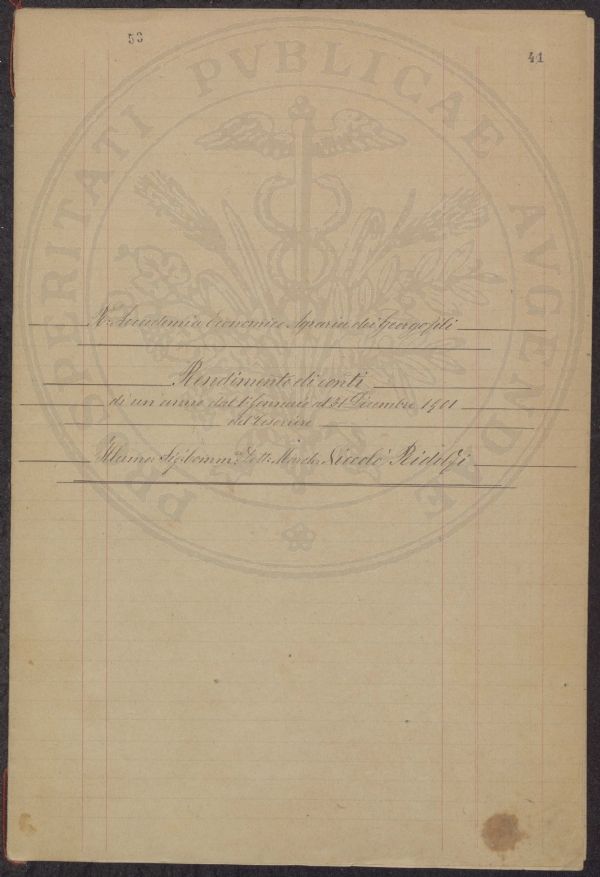 53
41
PROSPERITATI PVBLICAE AVGENDAE
Ra Accademia Economico Agraria dei Georgofili
Rendimento di conti
di un anno dal 1° Gennaio al 31 Dicembre 1901
del Tesoriere
Illmo Sig. Comm. Dott. March. Niccolò Ridolfi